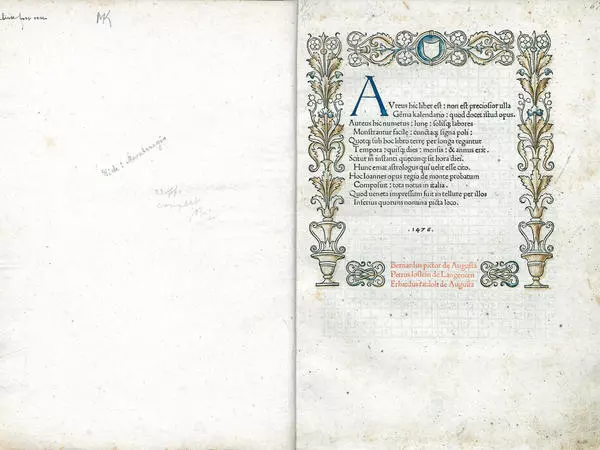 MK
AUreus hic liber est: non est preciosior ulla
Gēma kalendario: quod docet istud opus.
Aureus hic numerus: lune: solisq; labores
Monstrantur facile: cunctaq; signa poli:
Quotq; sub hoc libro terre per longa regantur
Tempora: quisq; dies: mensis: & annus erit.
Scitur in instanti quecunq; sit hora diei.
Hunc emat astrologus qui uelit esse cito.
Hoc Ioannes opus regio de monte probatum
Composuit: tota notus in italia.
Quod ueneta impressum fuit in tellure per illos
Inferius quorum nomina picta loco.
.1476.
Bernardus pictor de Augusta
Petrus loslein de Langencen
Erhardus ratdolt de Augusta